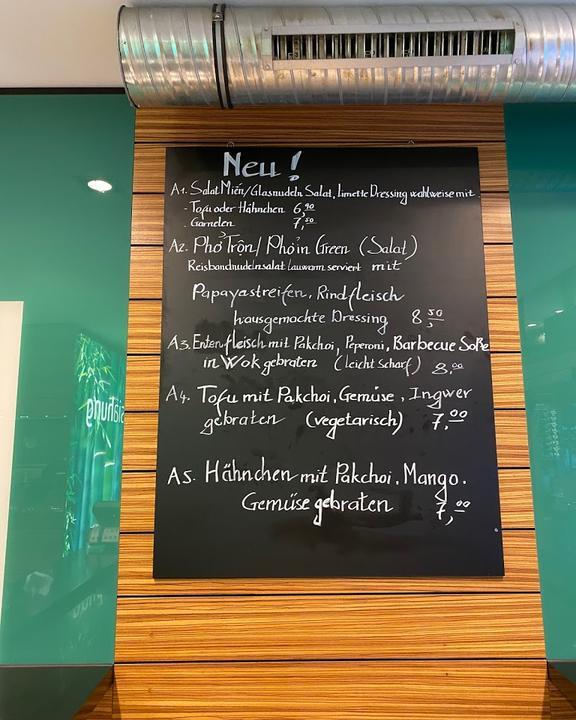 Neu!
A1. Salat Miến/Glasnudeln Salat, limette Dressing wahlweise mit
- Tofu oder Hähnchen 6,90
- Garnelen 7,50
A2. Phở Trộn/Phở in Green (Salat)
Reisbandnudelnsalat lauwarm serviert mit
Papayastreifen, Rindfleisch
hausgemachte Dressing 8,50
A3. Entenfleisch mit Pakchoi, Peperoni, Barbecue Soße
in Wok gebraten (leicht Scharf) 8,00
A4. Tofu mit Pakchoi, Gemüse, Ingwer
gebraten (vegetarisch) 7,00
A5. Hähnchen mit Pakchoi, Mango.
Gemüse gebraten 7,00